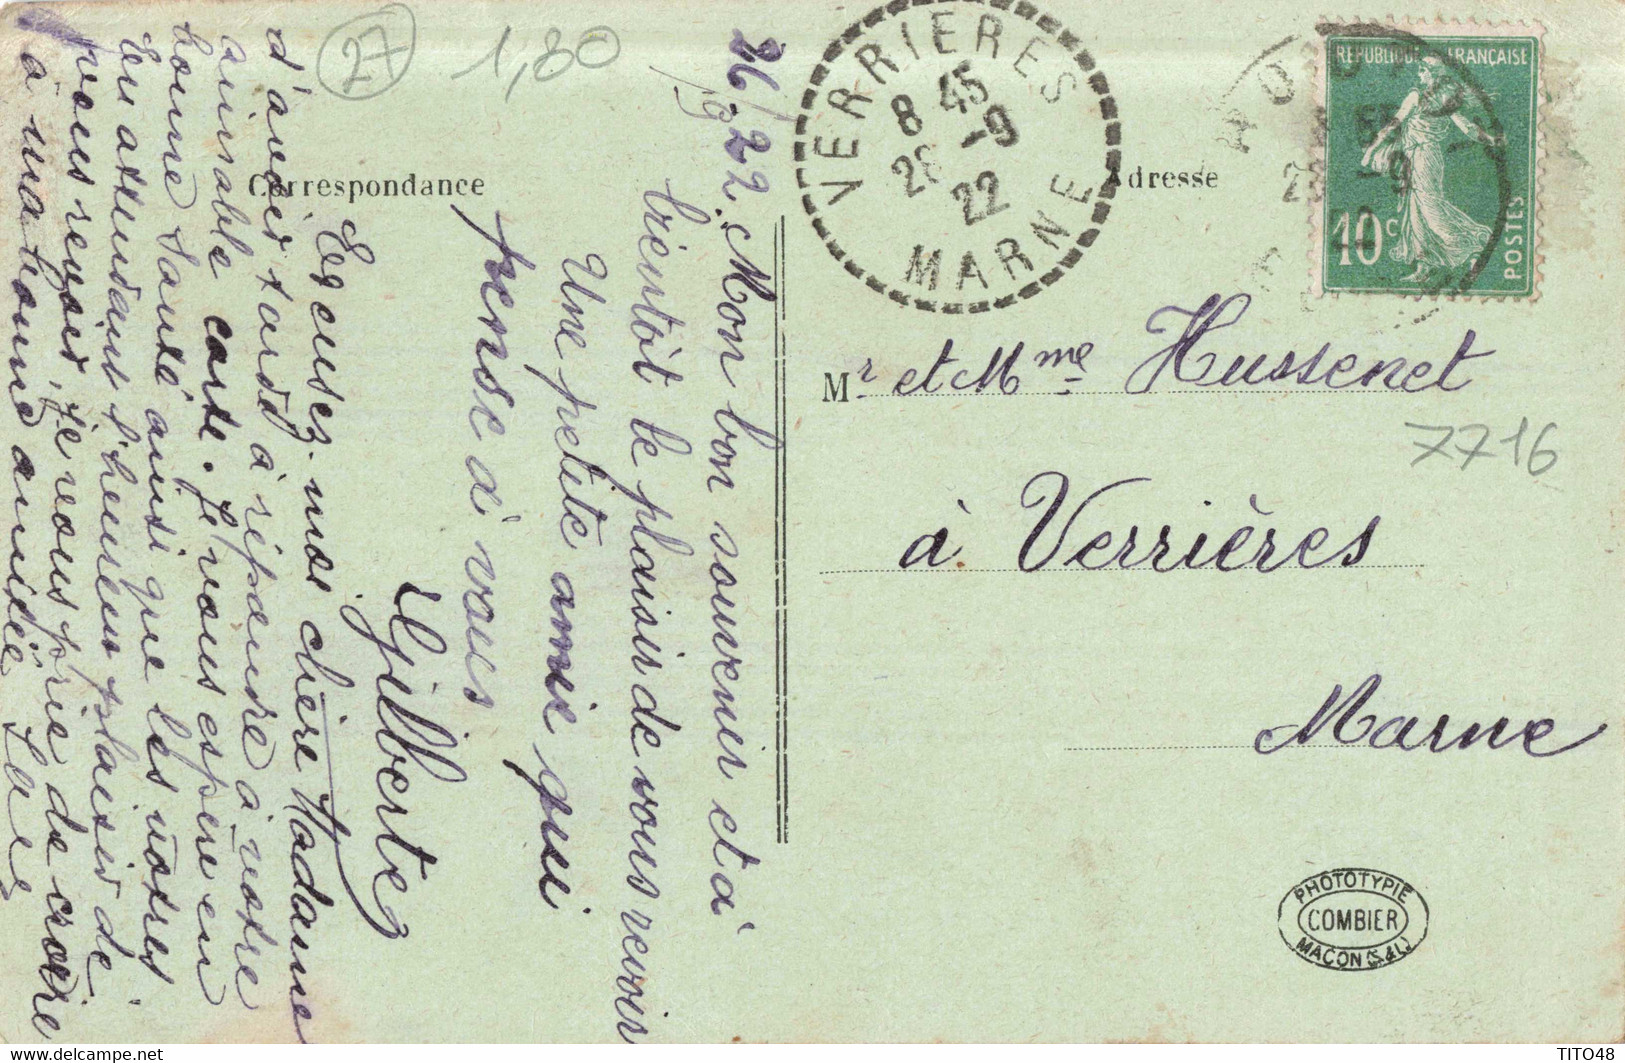 27
1,80
Correspondance
Adresse
26/9/22. Mon bon souvenir et à
bientôt le plaisir de vous revoir
Une petite amie qui
pense à vous
Gilberte
Excusez-nous chère Madame
d'avoir tardé à répondre à votre
aimable carte. Je vous espère en
bonne santé ainsi que les vôtres
En attendant l'heureux plaisir de
vous revoir, je vous prie de croire
à ma bonne amitié
VERRIERES
8 45
26 -9
22
MARNE
REPUBLIQUE FRANÇAISE
10c
POSTES
Mr et Mme Hussenet
7716
à Verrières
Marne
PHOTOTYPIE
COMBIER
MACON (S&L)
www.delcampe.net
TITO48